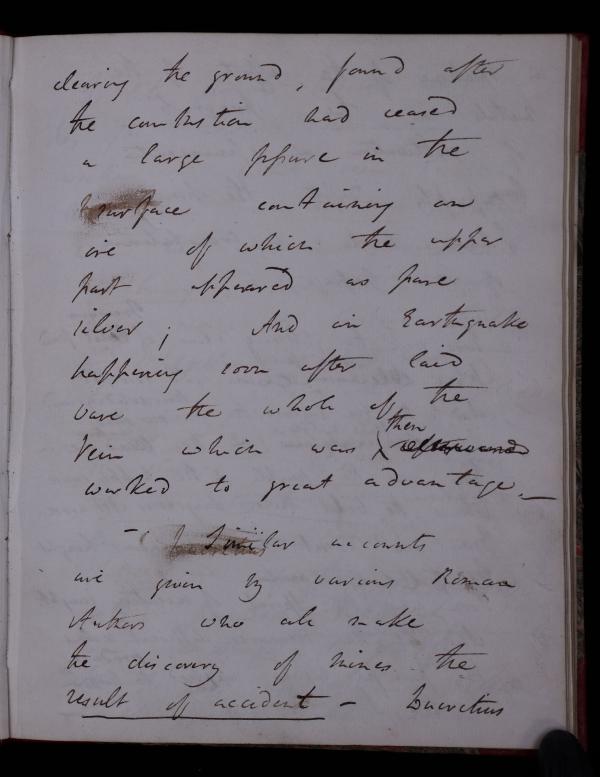 clearing the ground, found after
the combustion had ceased
a large fissure in the
surface containing an
ore of which the upper
part appeared as pure
silver; And an Earthquake
happening soon after laid
bare the whole of the
Vein which was then afterwards
worked to great advantage. —
— Similar accounts
are given by various Roman
Authors who all make
the discovery of mines the
result of accident – Lucretius